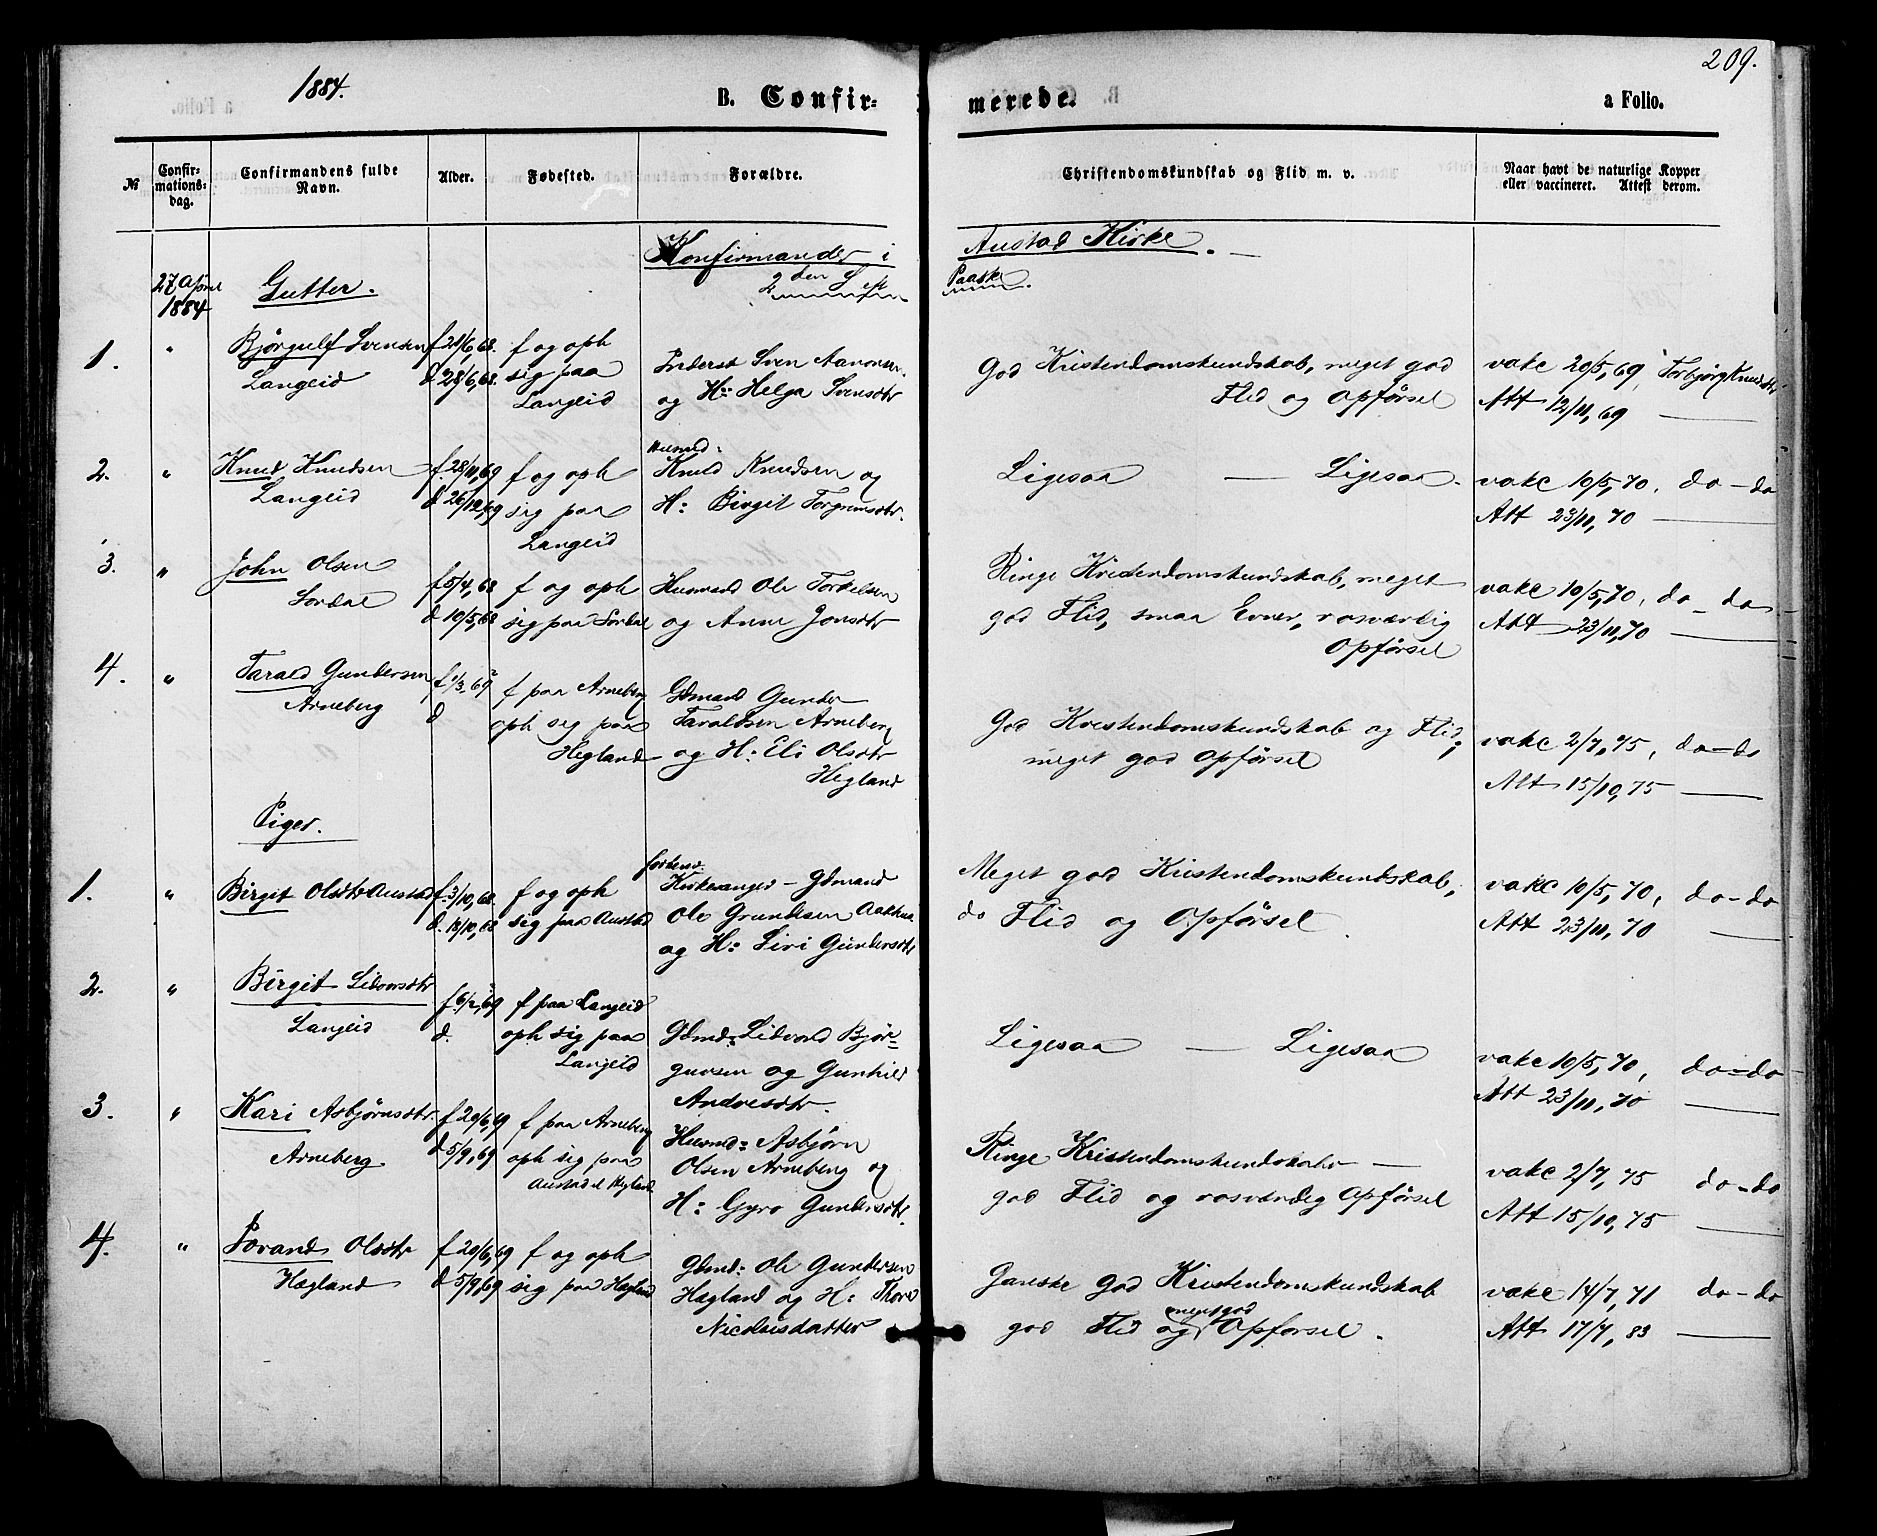 1884.
B. Confir-
merede.
a Folio.
209.
№
Confir-
mations-
dag.
Confirmandens fulde
Navn.
Alder.
Fødested.
Forældre.
Christendomskundskab og Flid m. v.
Naar havt de naturlige Kopper
eller vaccineret. Attest derom.
Konfirmander i Austad Kirke.
2den S. eft. Paaske.
27 April
1884
Gutter.
1. " Bjørgulf Svensen
Langeid
f 21/6, 68.
d. 28/6, 68.
f og oph
sig paa
Langeid
Inderst Sven Aanonsen
og H: Helga Svensdtr
God Kristendomskundskab, meget god
Flid og Opførsel
vakc 20/5, 69, Torbjørg Knudsdtr
Att 12/11, 69
2. " Knud Knudsen
Langeid
f. 28/11, 69
d 26/12, 69
f og oph
sig paa
Langeid
Husmd:
Knud Knudsen og
H: Birgit Torgrimsdtr.
Ligesaa — Ligesaa.
vakc 10/5, 70, do - do
Att 23/11, 70
3. " John Olsen
Sordal
f 5/4, 68
d 10/5, 68
f og oph
sig paa Sordal
Husmd Ole Torkelsen
og Anne Jonsdtr
Ringe Kristendomskundskab, meget
god Flid, smaa Evner, rosværlig
Opførsel
vakc 10/5, 70, do - do
Att 23/11, 70
4. " Tarald Gundersen
Arneberg
f 1/3 69
d
f paa Arneberg
oph sig paa
Hegland
Gdmand Gunder
Taraldsen Arneberg
og H: Eli Olsdtr
Hegland
God Kristendomskundskab og Flid,
meget god Opførsel
vakc 2/7, 75, do - do
Att 15/10, 75
Piger.
1. " Birgit Olsdtr Austad
f. 3/10, 68
d. 18/10, 68
f og oph
sig paa Austad
Kirkesanger - Gdmand
Ole Gundersen Aakhus
og H: Siri Gundersdtr
Meget god Kristendomskundskab,
do Flid og Opførsel.
vakc 10/5, 70, do - do
Att 23/11, 70
2. " Birgit Lidvorsdtr
Langeid
f 6/2, 69
d.
f paa Langeid
oph sig paa
Langeid
Gdmd: Lidvord Bjør-
guvsen og Gunhild
Andresdtr.
Ligesaa — Ligesaa
vakc 10/5, 70, do - do
Att 23/11, 70
3. " Kari Asbjørnsdtr.
Arneberg
f 20/6, 69
d 5/9, 69
f paa Arneberg
oph sig paa
Austad el Hegland
Husmd: Asbjørn
Olsen Arneberg og
H: Gyro Gundersdtr.
Ringe Kristendomskundskab —
god Flid og rosværdig Opførsel
vakc 2/7, 75 do - do
Att 15/10, 75
4. " Torand Olsdtr
Hægland
f 20/6, 69
d 5/9, 69
f og oph
sig paa Hægland
Gdmd: Ole Gundersen
Hægland og H: Thore
Nicolaisdatter
Ganske god Kristendomskundskab
god Flid og meget god Opførsel.
vakc 14/7, 71 do - do
Att 17/7, 83